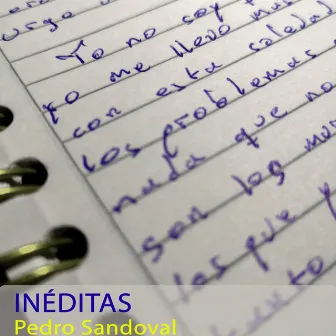 Yo no soy
yo me llevo mu
con esta soledad
los problemas
nada que no
son los mu
los que y
INÉDITAS
Pedro Sandoval